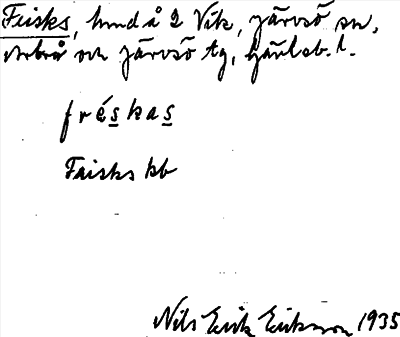 Frisks, hmd å 2 Vik, Järvsö sn,
Arbrå och Järvsö tg, Gävleb. l.
fréskas
Frisks kb
Nils Erik Eriksson 1935